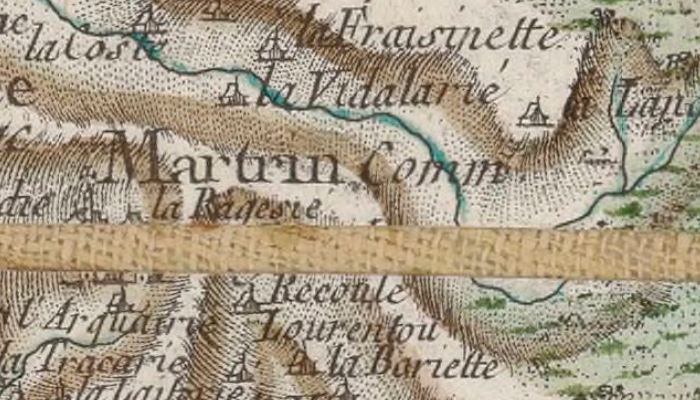 la Coste
la Fraissinette
la Vidalarié
Martrin Comm
la Ragesie
Recoule
l'Arquairie
Lourentou
la Tracarié
la Bariette